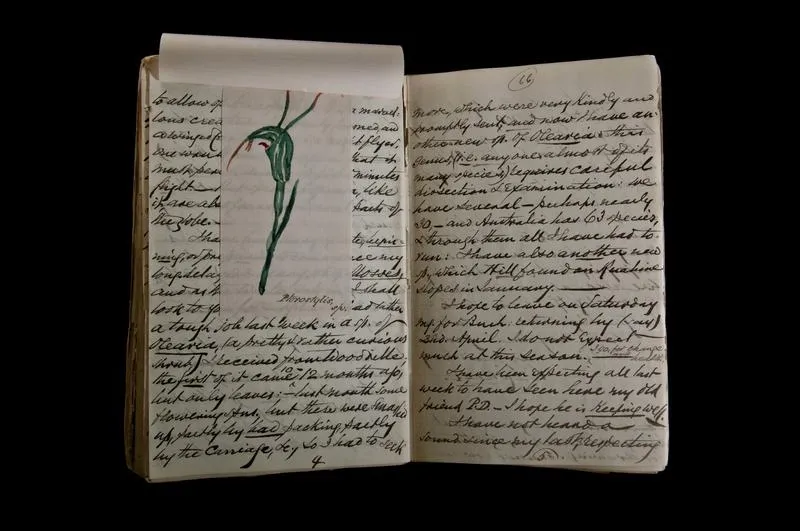 to allow of
loud crea
a wings (
one wan
must per
flight —
it, are ab
the globe.
I ha
ning, or p
long delay
and as to
look to fo
a marvel:
med, an
t flyer,
that it
minutes
, like
tracts of
ce my
Mosses
I shall
ad rather
Pterostylis, sp:
a tough job last week in a sp. of
Olearia, (a pretty & rather curious
shrub) I received from Woodville:
the first of it came 10–12 months ago,
but only leaves: — last month some
flowering spns, but these were smashed
up, partly by bad packing, partly
by the Carriage, &c, so I had to seek
4
(16)
more, which were very kindly and
promptly sent, and now I have an-
other new sp. of Olearia: this
genus, (i.e. any one almost of its
many species) requires careful
dissection & examination: we
have several — perhaps nearly
30, — and Australia has 63 species,
& through them all I have had to
run: I have also another new
sp. which Hill found on Ruahine
slopes in January. —
I hope to leave on Saturday
mg. for Bush: returning by (say)
2nd. April. I do not expect
much at this season. I go, for change
I have been expecting all last
week to have seen here my old
friend P.D. — I hope he is keeping well.
I have not heard a
sound since my last respecting